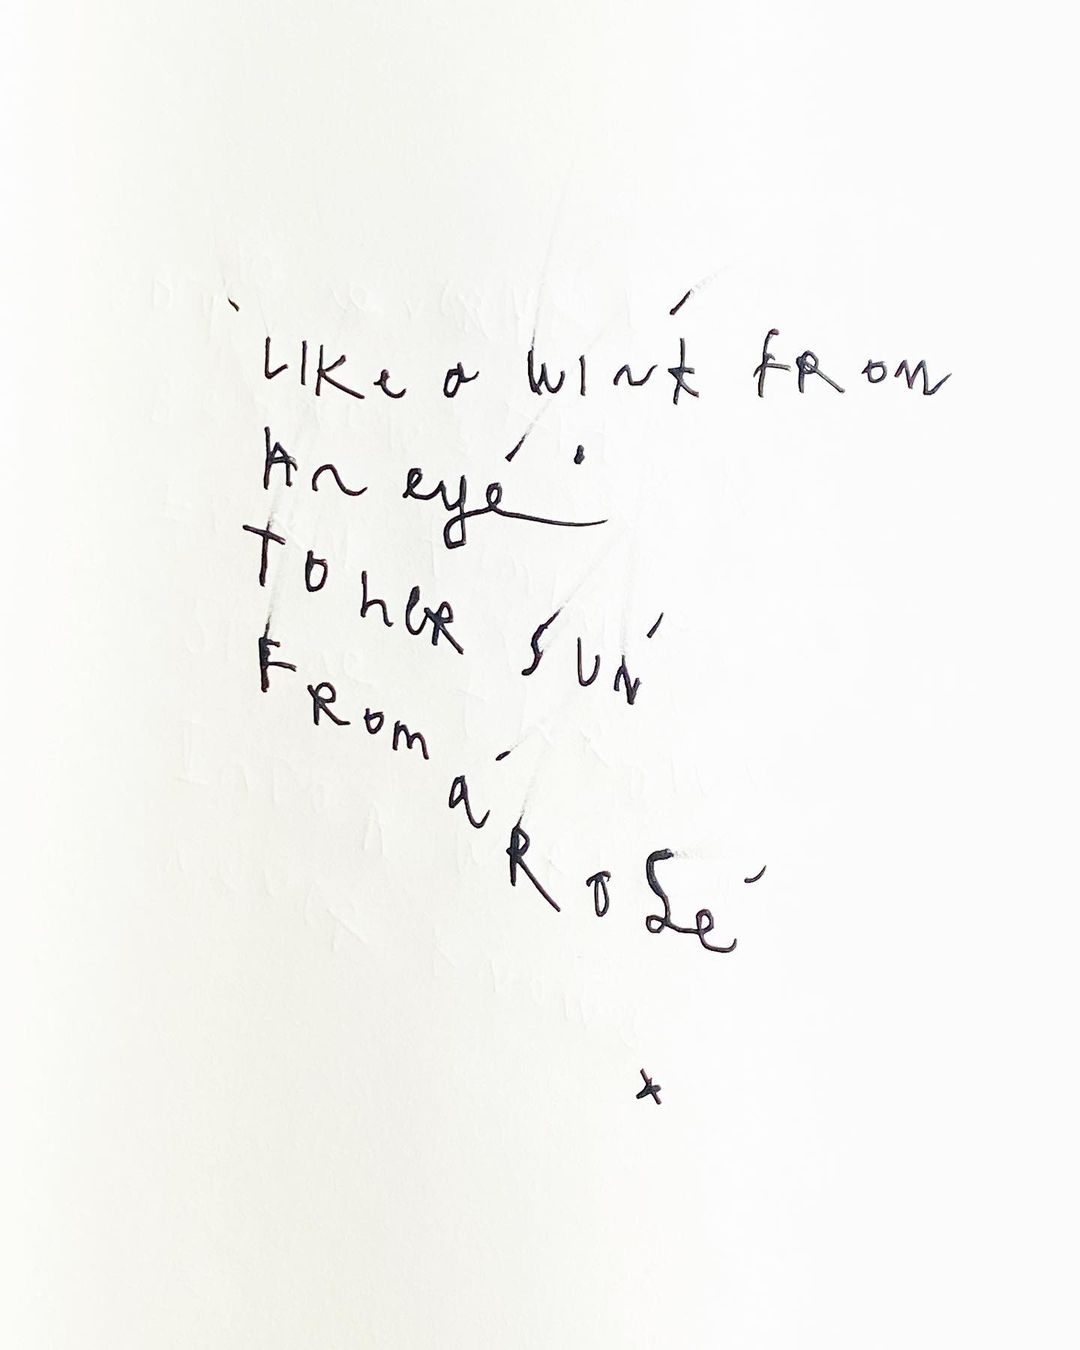 LIKe a WINK FROM
AN eye
TO heR SUN
FROm a ROSe